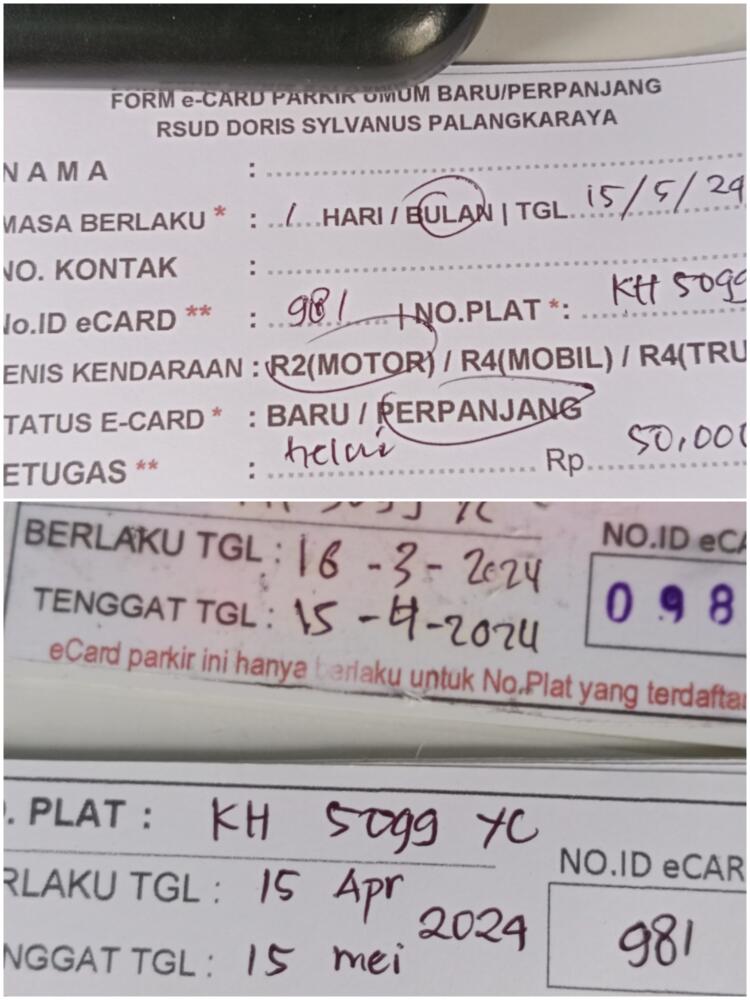 FORM e-CARD PARKIR UMUM BARU/PERPANJANG
RSUD DORIS SYLVANUS PALANGKARAYA
NAMA :
MASA BERLAKU * : 1 HARI / BULAN | TGL 15/5/24
NO. KONTAK :
No.ID eCARD ** : 981 | NO.PLAT *: KH 5099
ENIS KENDARAAN : R2(MOTOR) / R4(MOBIL) / R4(TRU
TATUS E-CARD * : BARU / PERPANJANG
ETUGAS ** : Rp 50,000
BERLAKU TGL : 16 - 3 - 2024
NO.ID eCA
TENGGAT TGL : 15 - 4 - 2024
098
eCard parkir ini hanya berlaku untuk No.Plat yang terdaftar
. PLAT : KH 5099 YC
NO.ID eCAR
RLAKU TGL : 15 Apr 2024
NGGAT TGL : 15 mei
981